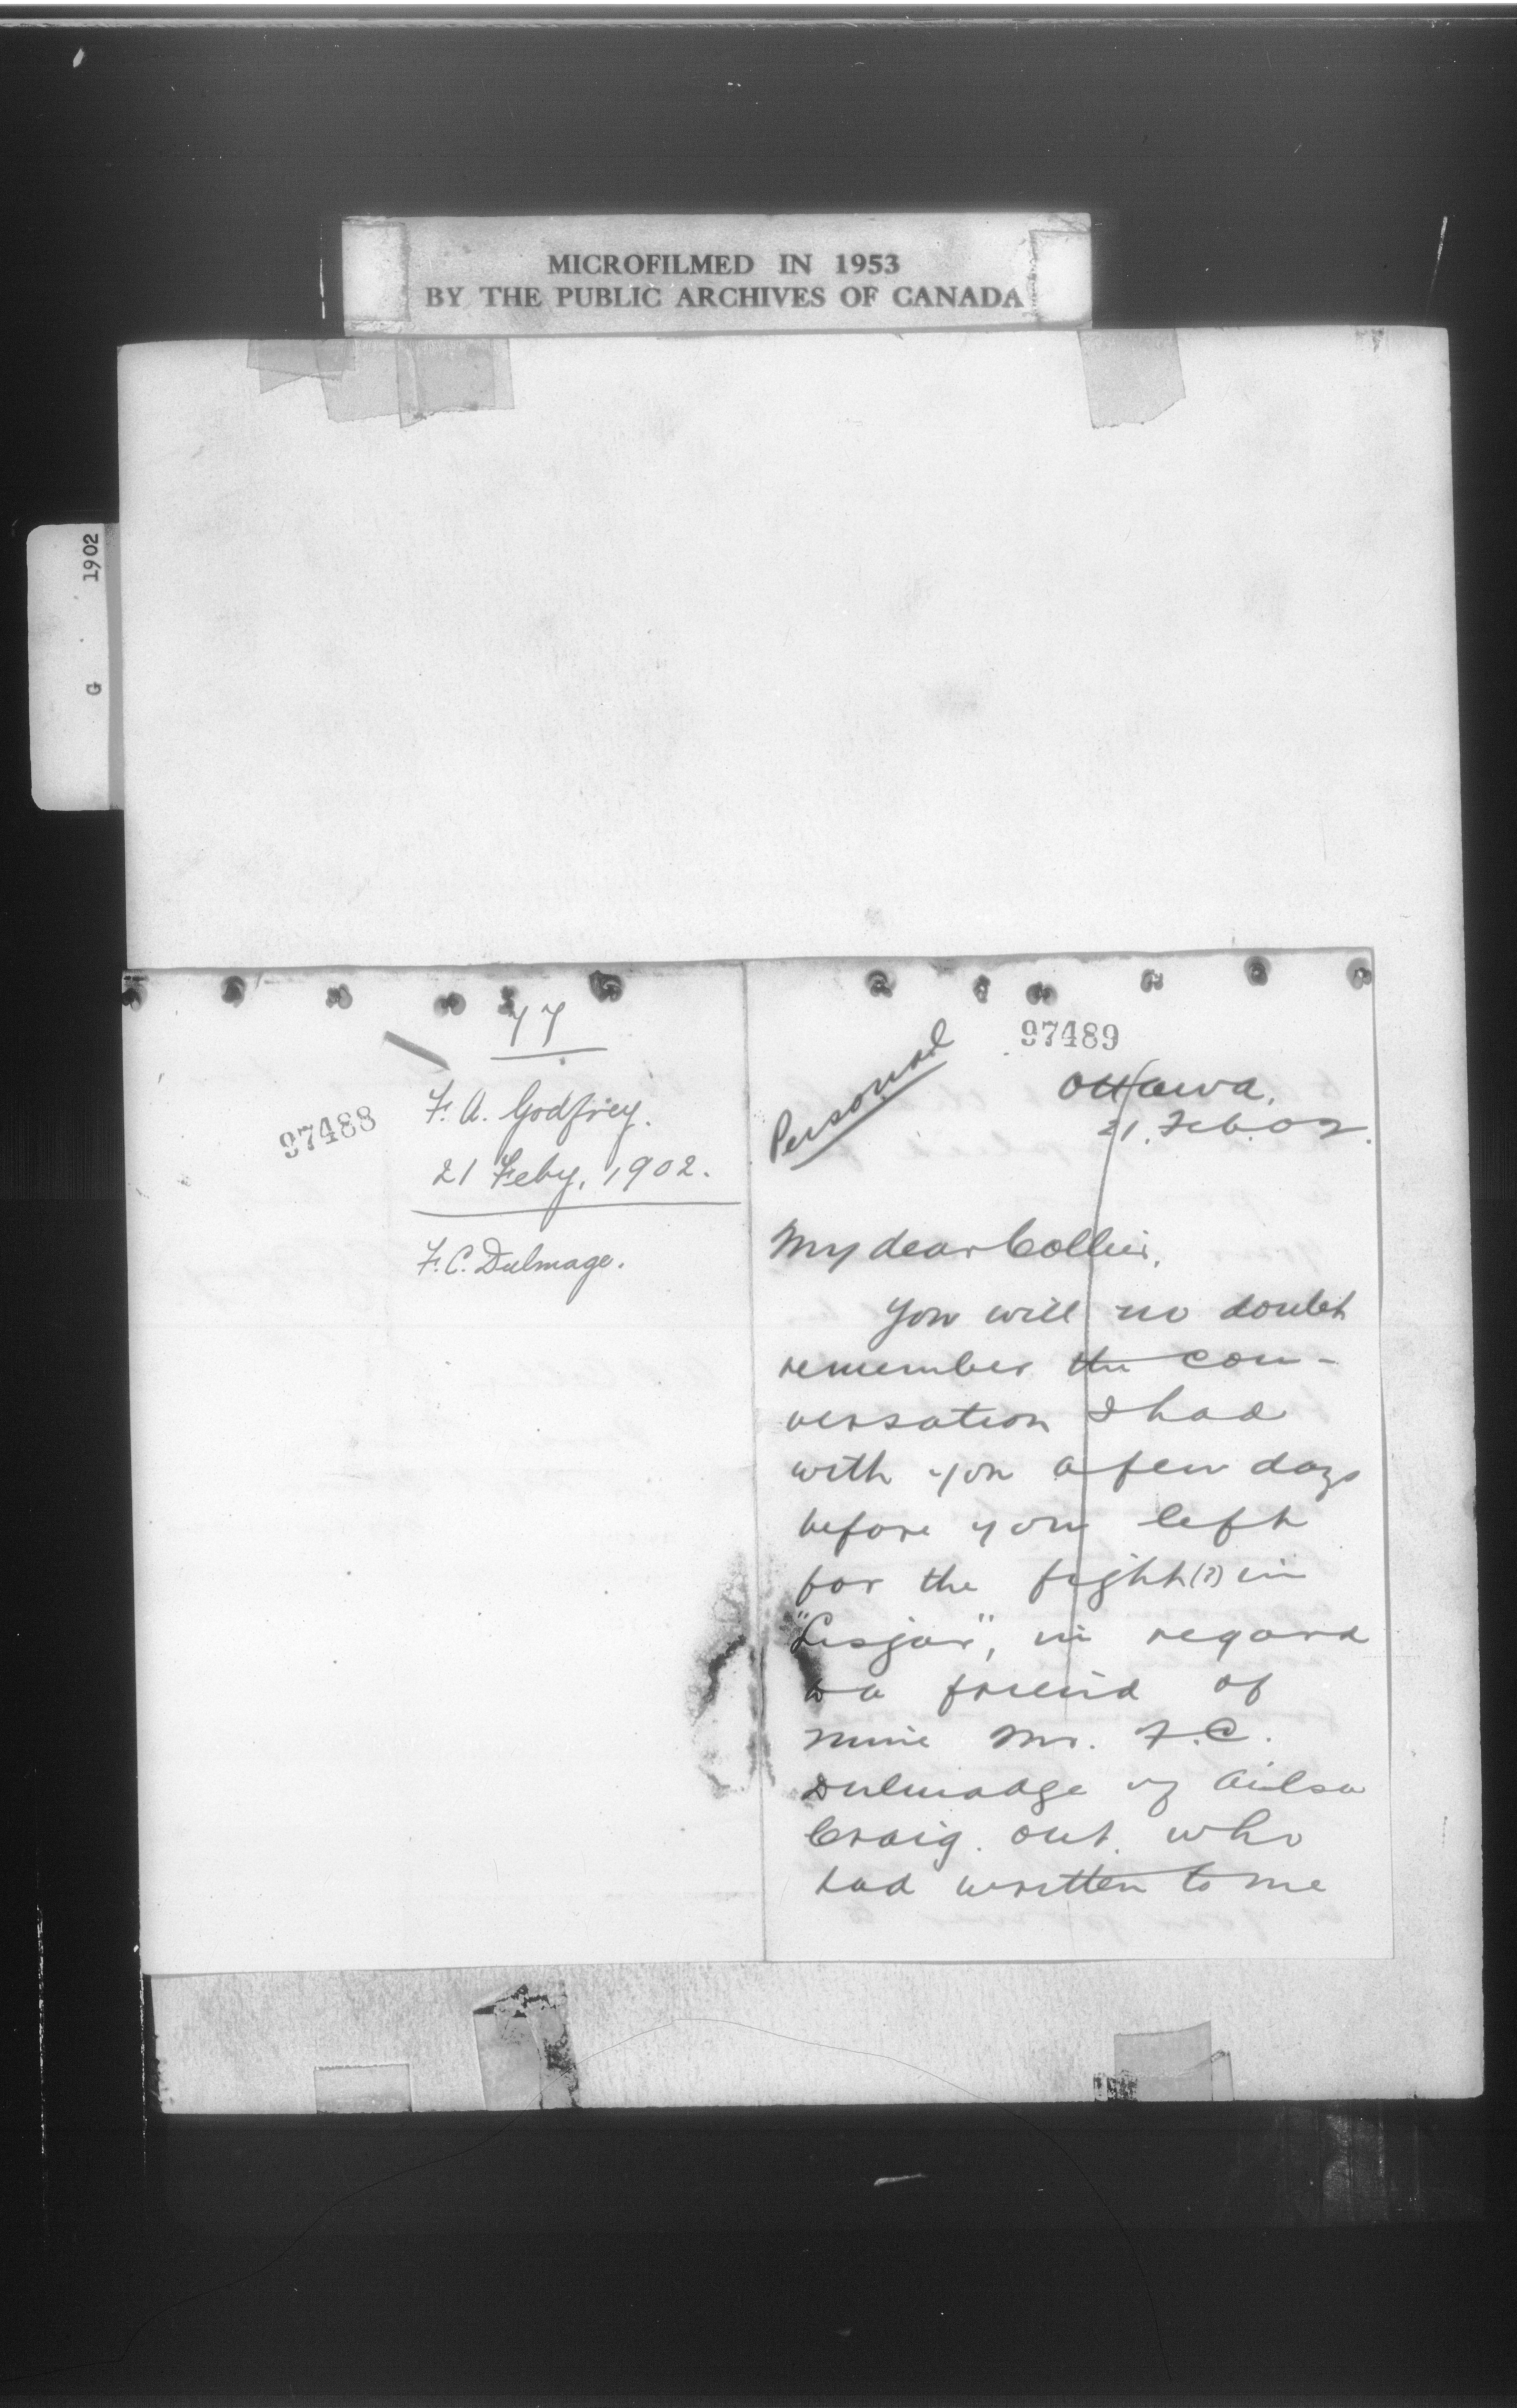 MICROFILMED IN 1953
BY THE PUBLIC ARCHIVES OF CANADA
G 1902
77
97488
F. A. Godfrey.
21 Feby, 1902.
F. C. Dulmage.
97489
Personal
Ottawa,
21. Feb. 02.
My dear Collier,
You will no doubt
remember the con-
versation I had
with you a few days
before you left
for the fight (?) in
"Lisgar", in regard
to a friend of
mine Mr. F. C.
Dulmadge of Ailsa
Craig. Ont. who
had written to me